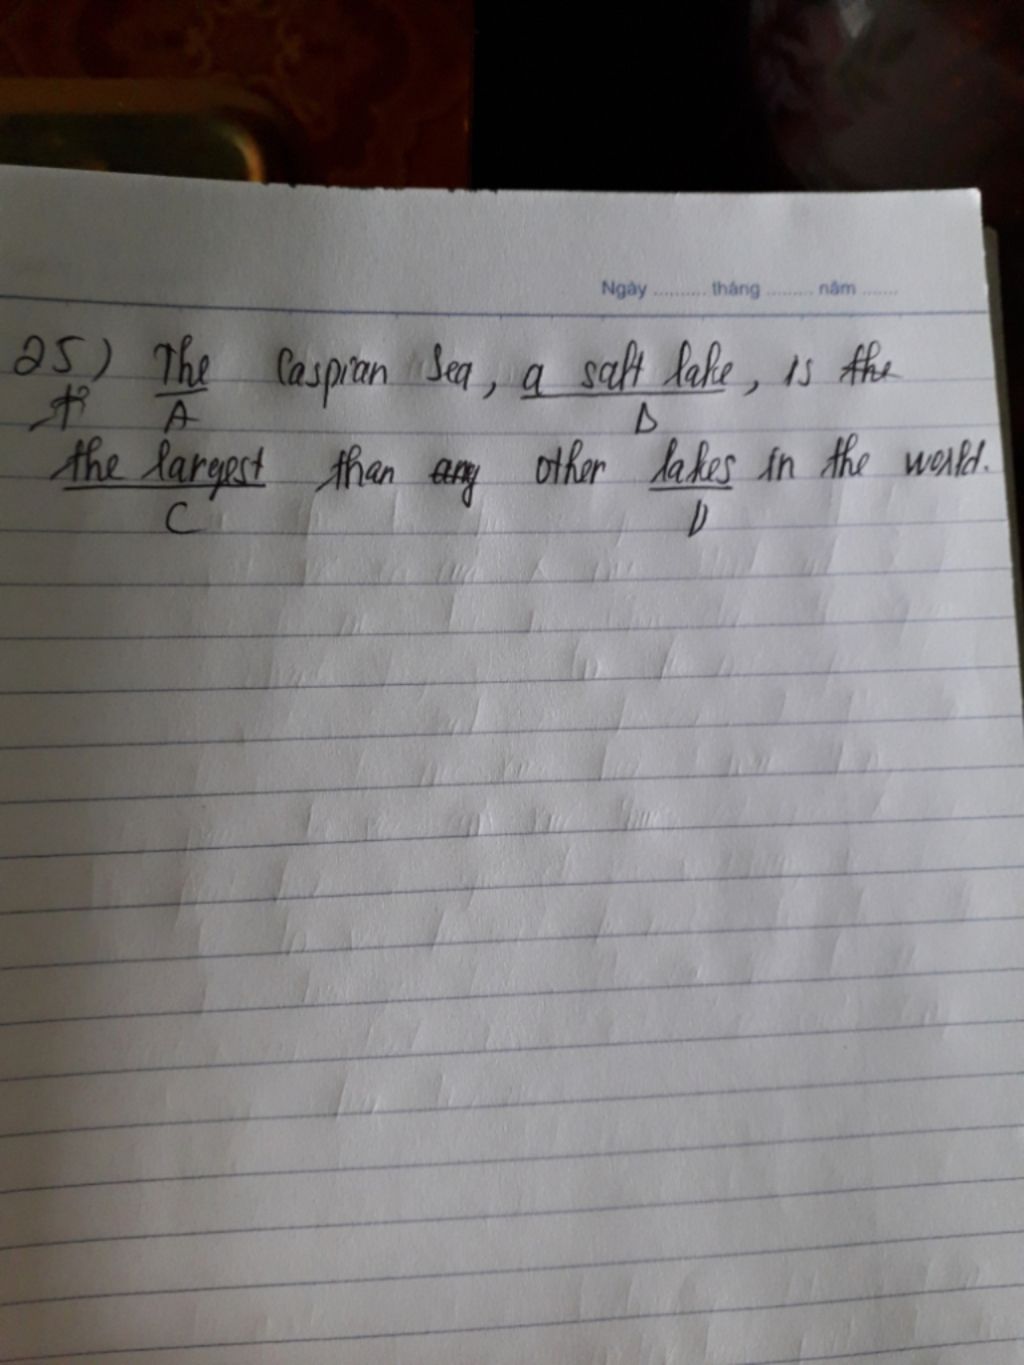 Ngày .......... tháng ......... năm .......
25) The Caspian Sea, a salt lake, is the
A B
the largest than any other lakes in the world.
C D